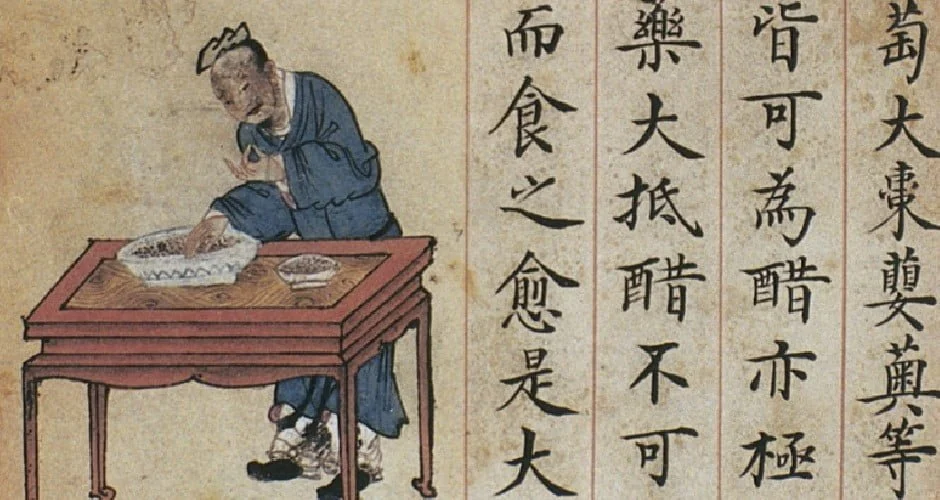 萄大棗蘡薁等
皆可為醋亦極
藥大抵醋不可
而食之愈是大